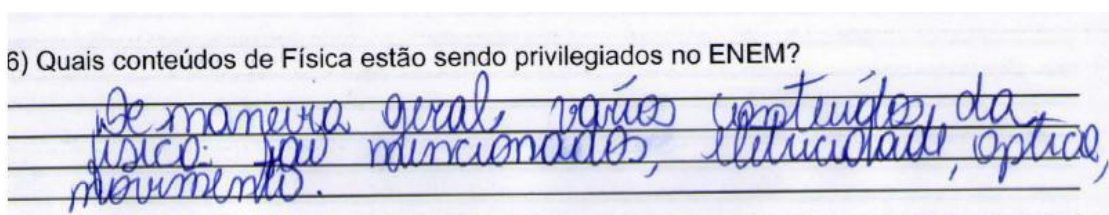 6) Quais conteúdos de Física estão sendo privilegiados no ENEM?
De maneira geral, vários conteúdos da
física são mencionados, eletricidade, óptica,
movimento.